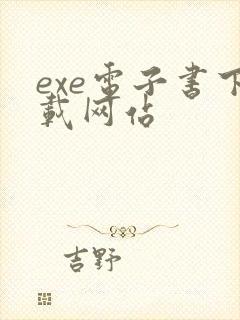 exe電子書下
載网佔
吉野